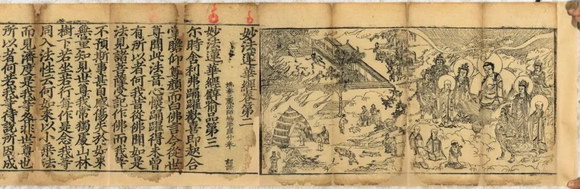 妙法蓮華經卷第二
妙法蓮華經譬喻品第三
尓時舍利弗踊躍歡喜即起合
掌瞻仰尊顏而白佛言今從世
尊聞此法音心懷踊躍得未曾
有所以者何我昔從佛聞如是
法見諸菩薩受記作佛而我等
不預斯事甚自感傷失於如來
無量知見世尊我常獨處山林
樹下若坐若行每作是念我等
同入法性云何如來以小乘法
而見濟度是我等咎非世尊也
所以者何若我等待說所因成